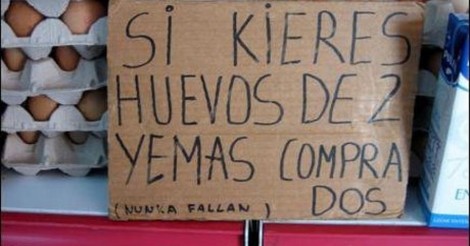 SI KIERES
HUEVOS DE 2
YEMAS COMPRA
(NUNKA FALLAN) DOS